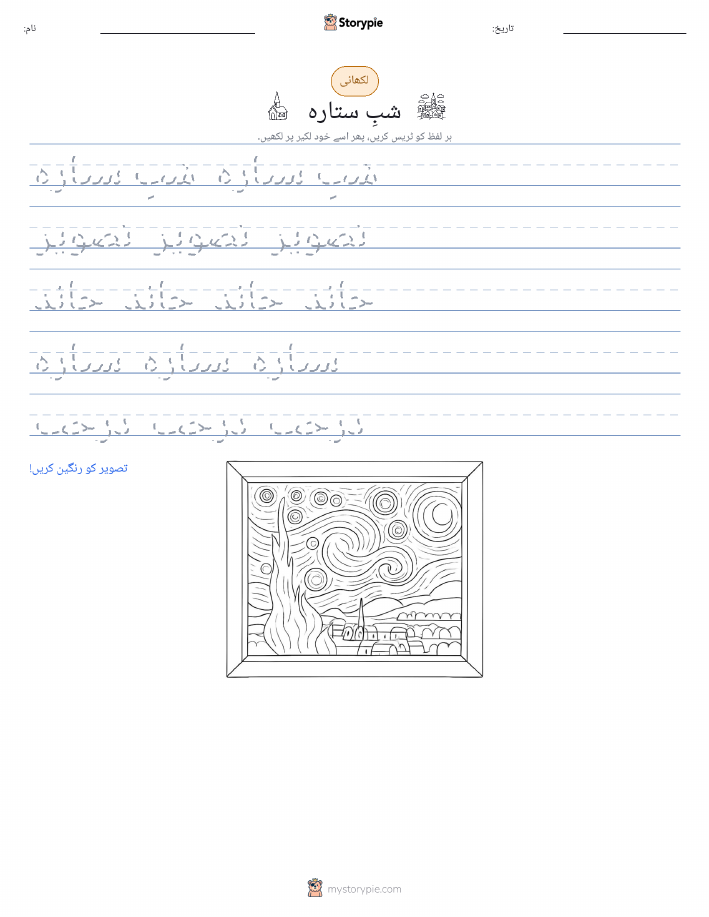 نام:
Storypie
تاریخ:
لکھائی
شبِ ستارہ
ہر لفظ کو ٹریس کریں، پھر اسے خود لکیر پر لکھیں۔
شبِ ستارہ شبِ ستارہ
تصویر تصویر تصویر
چاند چاند چاند چاند
ستارہ ستارہ ستارہ
درخت درخت درخت
تصویر کو رنگین کریں!
mystorypie.com